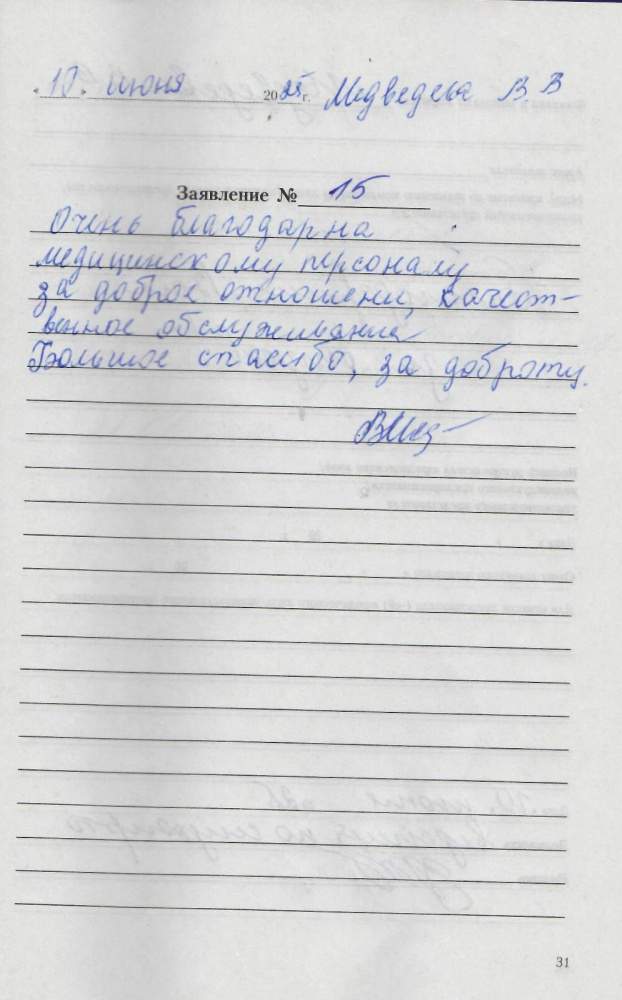 10. июня 2025 г. Медведева В В
Заявление № 15
Очень благодарна
медицинскому персоналу
за доброе отношени, качест-
венное обслуживание
Большое спасибо, за доброту.
31